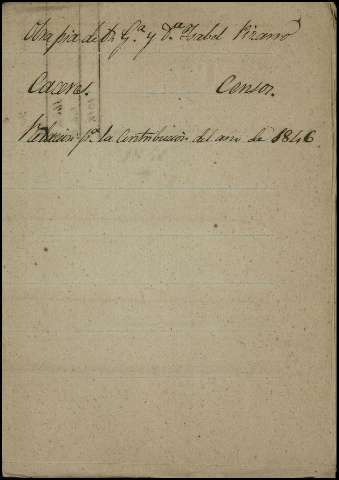 Obra pia de Dn Gª y Dª Isabel Pizarro
Caceres. Censos.
Relacion pª la Contribucion del año de 1846.